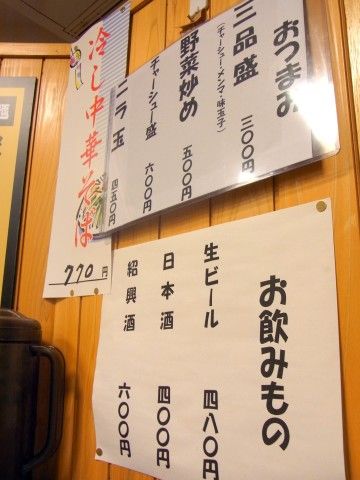 おつまみ
三品盛 三〇〇円
(チャーシュー・メンマ・味玉子)
野菜炒め 五〇〇円
チャーシュー盛 六〇〇円
ニラ玉 四五〇円
冷し中華そば
770円
お飲みもの
生ビール 四八〇円
日本酒 四〇〇円
紹興酒 六〇〇円